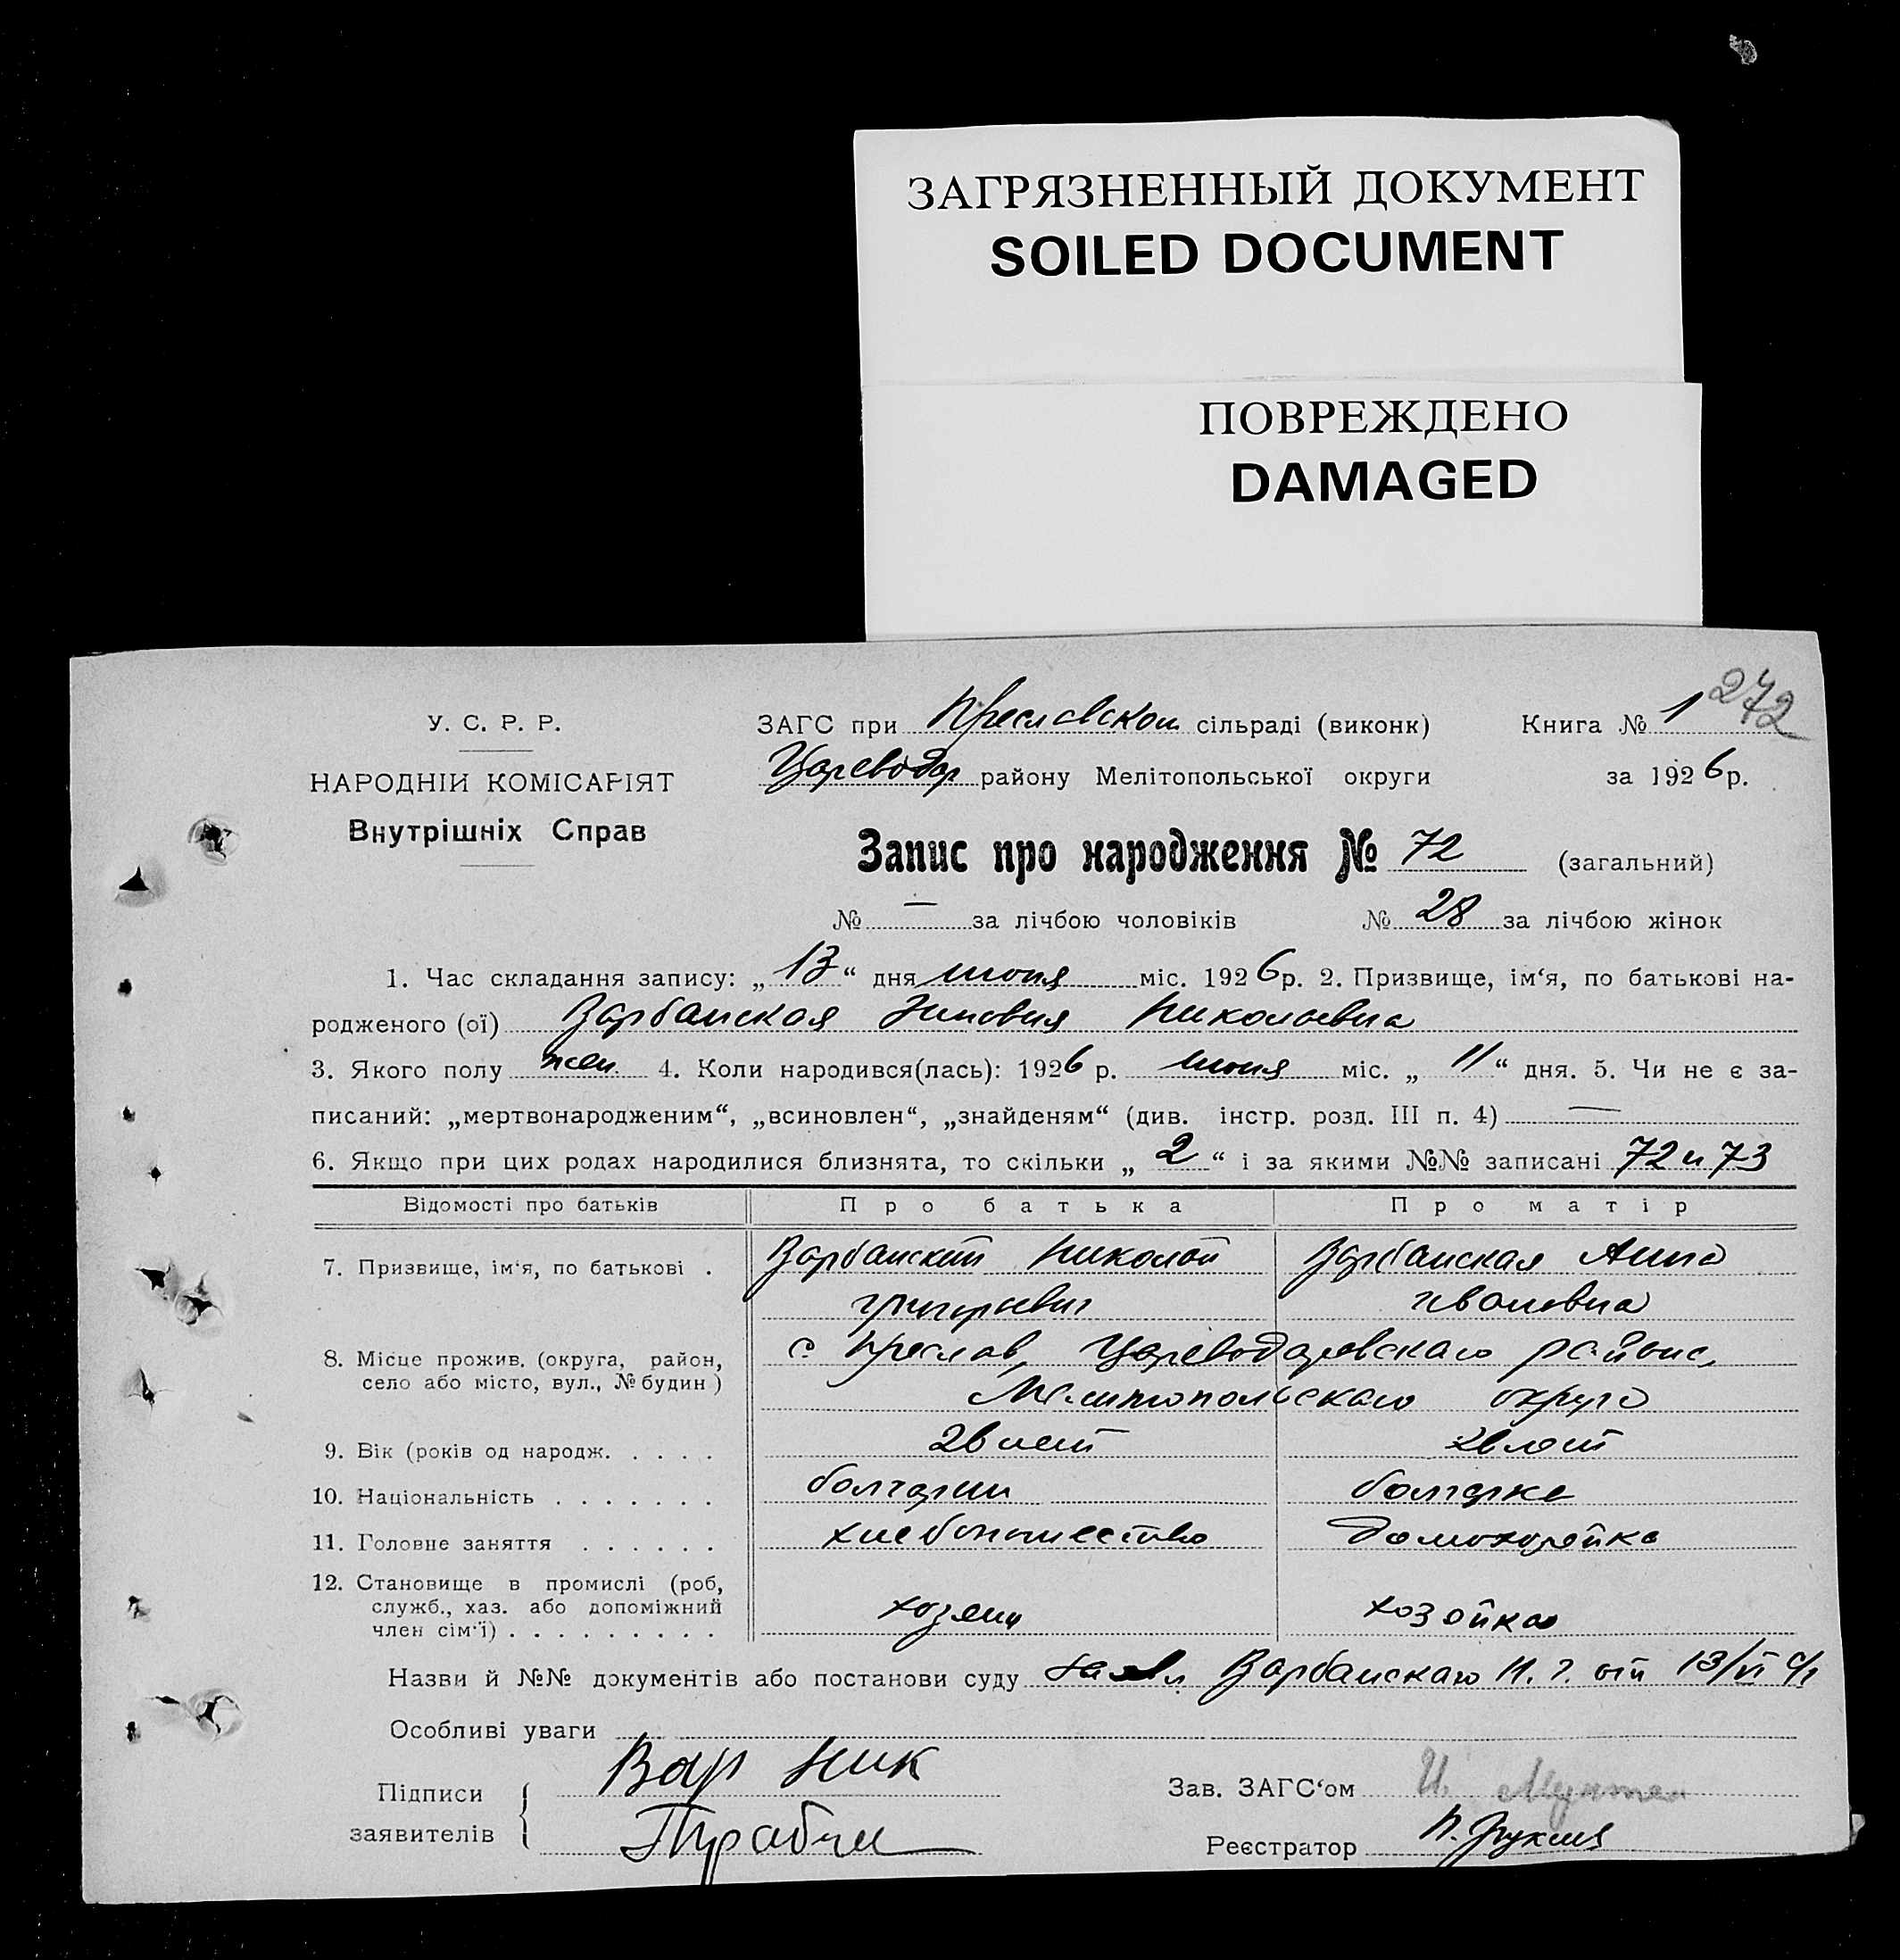 ЗАГРЯЗНЕННЫЙ ДОКУМЕНТ
SOILED DOCUMENT
ПОВРЕЖДЕНО
DAMAGED
272
У. С. Р. Р.
НАРОДНІЙ КОМІСАРІЯТ
Внутрішніх Справ
ЗАГС при Преславском сільраді (виконк) Книга № 1
Цареводар району Мелітопольської округи за 1926 р.
Запис про народження № 72 (загальний)
№ — за лічбою чоловіків № 28 за лічбою жінок
1. Час складання запису: „13“ дня июня міс. 1926 р. 2. Призвище, ім‘я, по батькові на-
родженого (ої) Варбанская Зиновия Николаевна
3. Якого полу жен. 4. Коли народився(лась): 1926 р. июня міс. „11“ дня. 5. Чи не є за-
писаний: „мертвонародженим“, „всиновлен“, „знайденям“ (див. інстр. розд. III п. 4) —
6. Якщо при цих родах народилися близнята, то скільки „2“ і за якими №№ записані 72 и 73
Відомості про батьків Про батька Про матір
7. Призвище, ім‘я, по батькові . Варбанский Николай Варбанская Анна
григориевич ивановна
8. Місце прожив. (округа, район, с. Преслав, Цареводаровскаго района,
село або місто, вул., № будин ) Мелитопольскаго округа
9. Вік (років од народж. . . . . 26 лет 26 лет
10. Національність . . . . . . . болгарин болгарка
11. Головне заняття . . . . . . хлебопашество домохозяйка
12. Становище в промислі (роб,
служб., хаз. або допоміжний хозяин хозяйка
член сім‘ї) . . . . . . . . .
Назви й №№ документів або постанови суду заявл Варбанскаго Н. Г. от 13/VI с/г
Особливі уваги
Підписи Вар Ник Зав. ЗАГС‘ом И.
заявителів Реєстратор